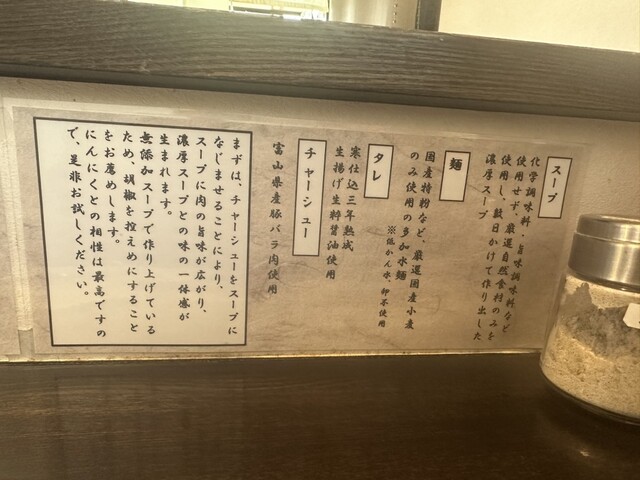 スープ
化学調味料・旨味調味料など
使用せず、厳選自然食材のみを
使用し、数日かけて作り出した
濃厚スープ
麺
国産特粉など、厳選国産小麦
のみ使用の多加水麺
※低かん水、卵不使用
タレ
寒仕込三年熟成
生揚げ生粋醤油使用
チャーシュー
富山県産豚バラ肉使用
まずは、チャーシューをスープに
なじませることにより、
スープに肉の旨味が広がり、
濃厚スープとの味の一体感が
生まれます。
無添加スープで作り上げている
ため、胡椒を控えめにすること
をお薦めします。
にんにくとの相性は最高ですの
で、是非お試しください。